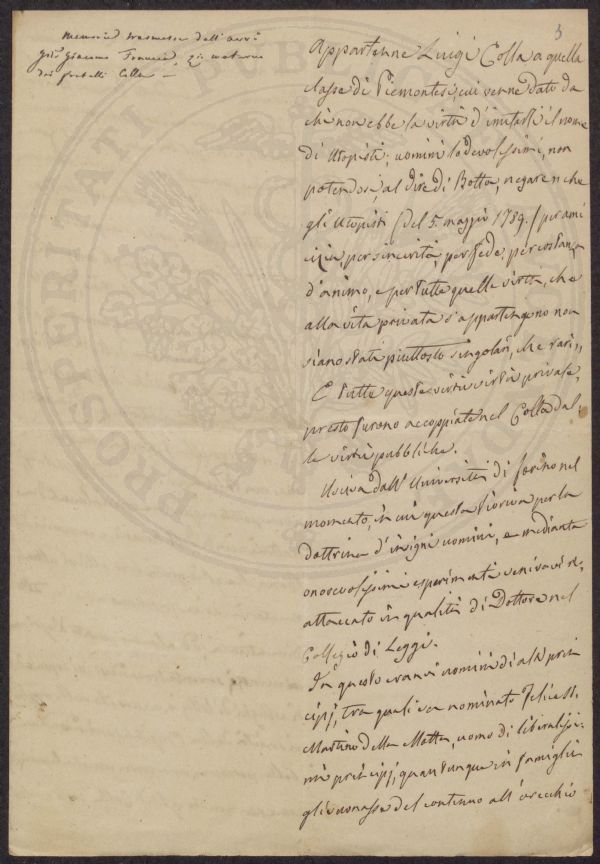 Memorie trasmesse dall'avvo
Giacomo zio materno
dei fratelli Colla —
3
Appartenne Luigi Colla a quella
classe di Piemontesi, cui venne dato da
chi non ebbe la virtù d'imitarli il nome
di Utopisti; uomini lodevolissimi, non
potendosi, al dire di Botta, negare che
gli Utopisti (del 5. maggio 1789.) per ami
cizia per sincerità, per fede, per costanza
d'animo, e per tutte quelle virtù, che
alla vita privata s'appartengono non
siano stati piuttosto singolari, che rari,,
E tutte queste virtù virtù private,
presto furono accoppiate nel Colla dal,
le virtù pubbliche.
Usciva dall'Università di Torino nel
momento, in cui questa fioriva per la
dottrina d'insigni uomini, e mediante
onorevolissimi esperimenti veniva vi n,
attaccato in qualità di Dottore nel
Collegio di Leggi.
In questo eranvi uomini di alti prin
cipj, tra quali va nominato Felice St.
Martino della Motta, uomo di liberalissi-
mi principj, quantunque in famiglia
gli suonasse del continuo all'orecchio
PROSPERITATI PUBLIC